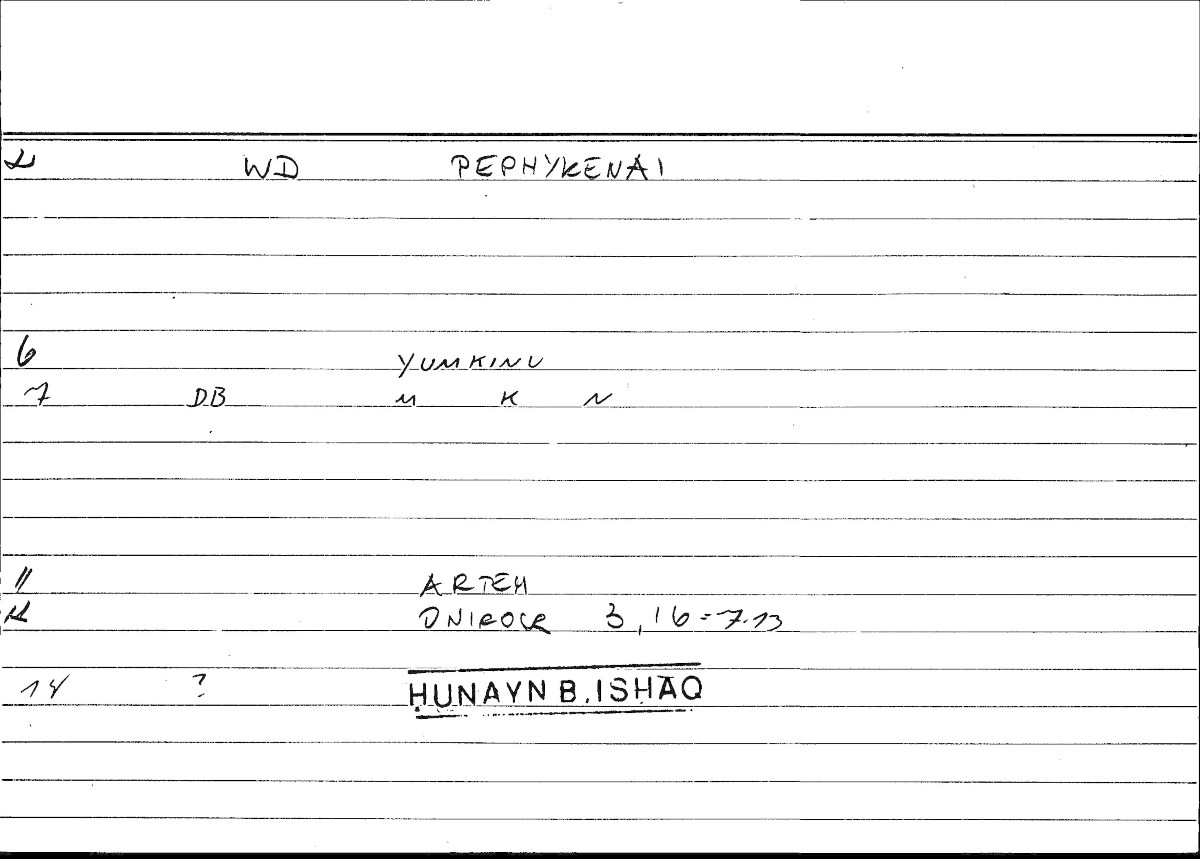 2 WD PEPHYKENAI
6 YUMKINU
7 DB M K N
11 ARTEM
12 ONIROCR 3,16=7.13
14 ? ḤUNAYN B. ISḤĀQ